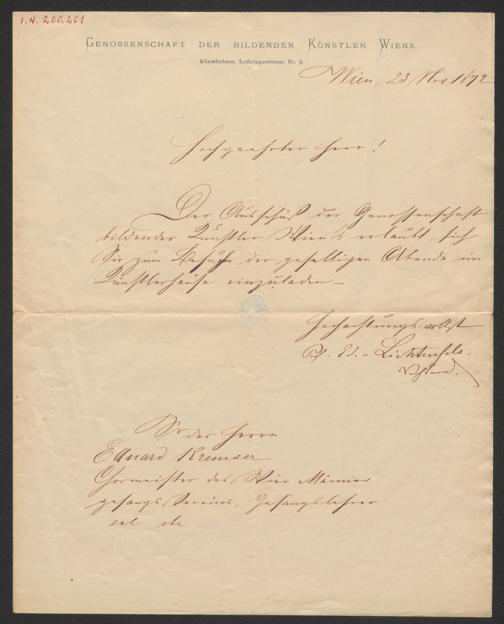 I.N. 200.201
GENOSSENSCHAFT DER BILDENDEN KÜNSTLER WIENS.
Künstlerhaus, Lothringerstrasse Nr. 9.
Wien, 23 Nov. 1892
Hochgeehrter Herr!
Der Ausschuß der Genossenschaft
bildender Künstler Wien's erlaubt sich
Sie zum Besuche der geselligen Abende im
Künstlerhause einzuladen –
Hochachtungsvollst
Ed. Lichtenfels.
Herrn
Eduard Kremser
Chormeister des Wien Männer
gesangs Vereins, Gesangslehrer